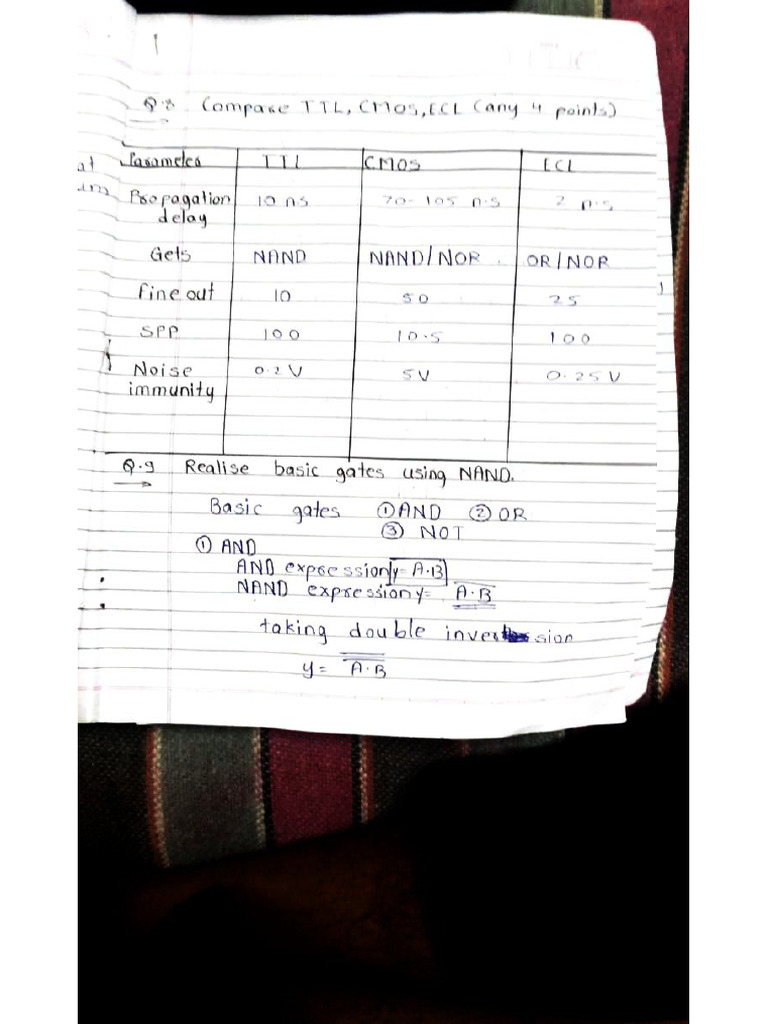 1
Q.8 Compare TTL, CMOS, ECL (any 4 points)
at
Parameter TTL CMOS ECL
Propagation 10 ns 70-105 n.s 2 n.s
delay
Gets NAND NAND/NOR. OR/NOR
fine out 10 50 25
SPP 100 10.5 100
Noise 0.2V 5V 0.25V
immunity
Q.9 Realise basic gates using NAND.
Basic gates ① AND ② OR
③ NOT
① AND
AND expression y= A.B
NAND expression y= \overline{A.B}
taking double inversion
y= \overline{\overline{A.B}}